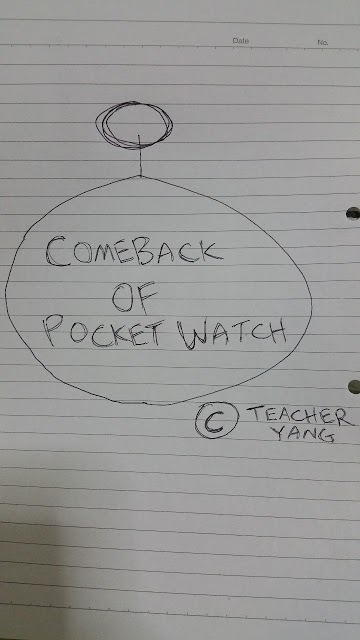 Date No.
COMEBACK
OF
POCKET WATCH
© TEACHER
YANG